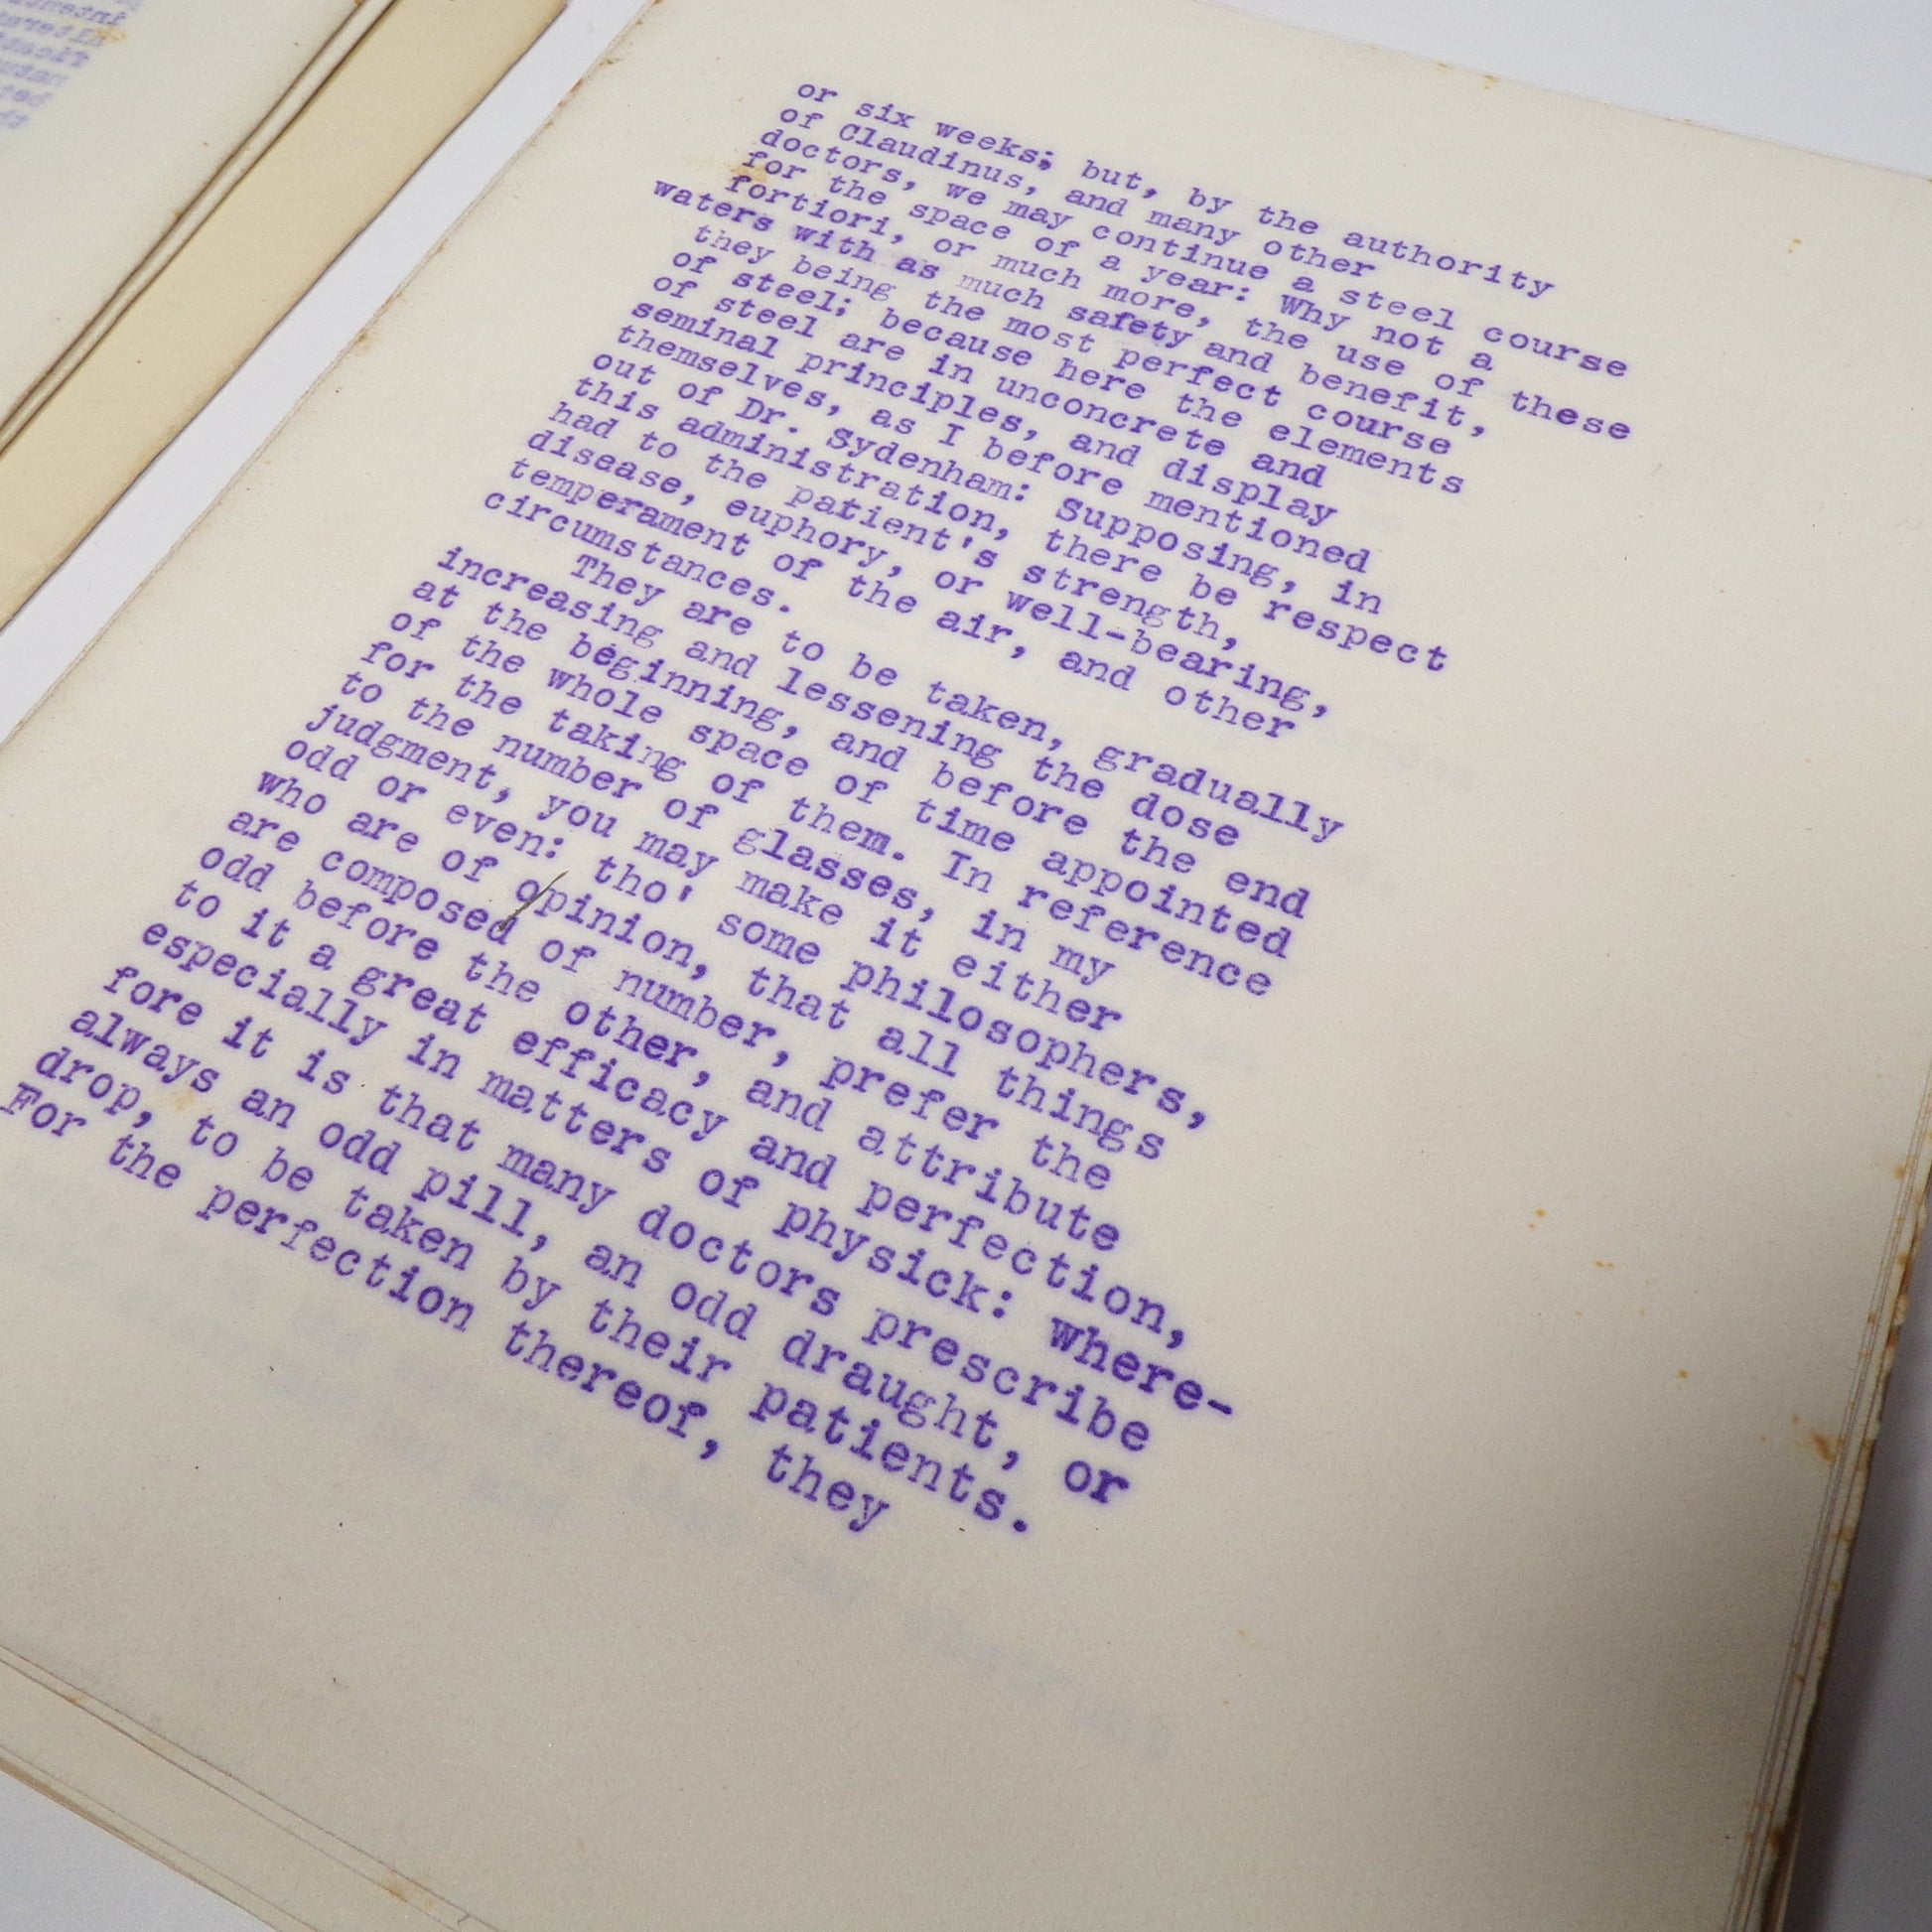 or six weeks; but, by the authority
of Claudinus, and many other
doctors, we may continue a steel course
for the space of a year: Why not a
fortiori, or much more, the use of these
waters with as much safety and benefit,
they being the most perfect course
of steel; because here the elements
of steel are in unconcrete and
seminal principles, and display
themselves, as I before mentioned
out of Dr. Sydenham: Supposing, in
this administration, there be respect
had to the patient's strength,
disease, euphory, or well-bearing,
temperament of the air, and other
circumstances.
They are to be taken, gradually
increasing and lessening the dose
at the beginning, and before the end
of the whole space of time appointed
for the taking of them. In reference
to the number of glasses, in my
judgment, you may make it either
odd or even: tho' some philosophers,
who are of opinion, that all things
are composed of number, prefer the
odd before the other, and attribute
to it a great efficacy and perfection,
especially in matters of physick: Where-
fore it is that many doctors prescribe
always an odd pill, an odd draught, or
drop, to be taken by their patients.
For the perfection thereof, they